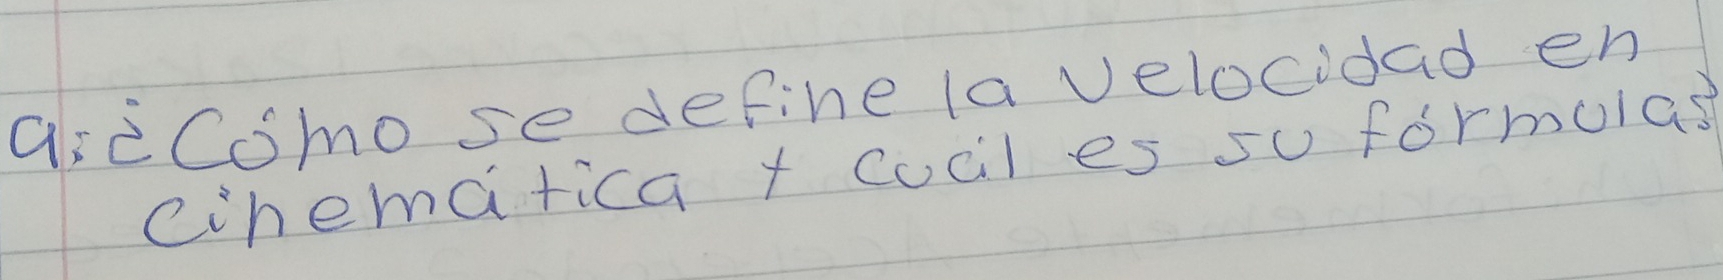 a: ¿Cómo se define la velocidad en
cinemática y cuál es su fórmula?